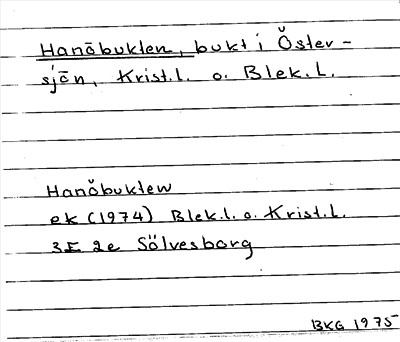 Hanöbukten, bukt i Öster-
sjön, Krist.l. o. Blek.l.
Hanöbukten
ek (1974) Blek.l. o. Krist.l.
3E 2e Sölvesborg
BKG 1975